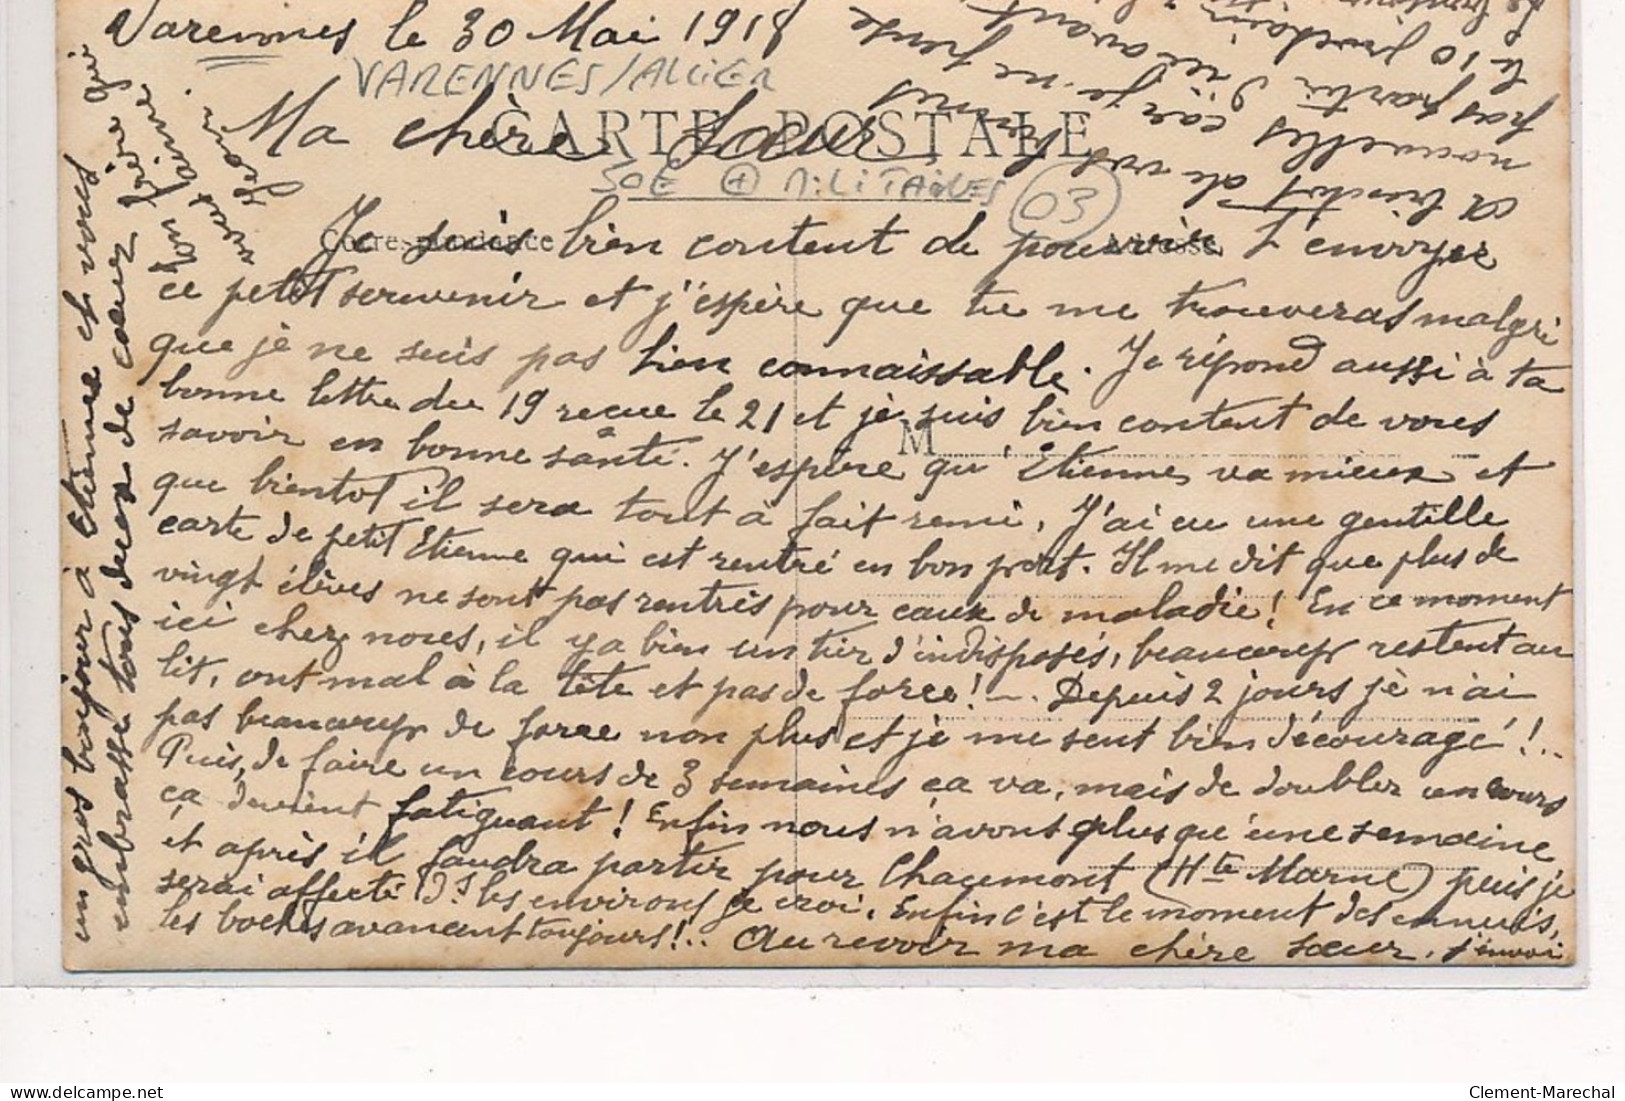 Varennes le 30 Mai 1918
VARENNES/ALLIER
CARTE POSTALE
Ma chère Sœur
30E + MILITAIRES
03
Correspondance
Adresse
M
Je suis bien content de pouvoir t'envoyer
ce petit souvenir et j'espère que tu me trouveras malgri
que jè ne suis pas bien connaissable. Je répond aussi à ta
bonne lettre du 19 recue le 21 et jè suis bien content de vous
savoir en bonne sânté. J'espère qu'Etienne va mieux et
que bientot il sera tout à fait remi. J'ai eu une gentille
carte de petit Etienne qui est rentré en bon port. Il me dit que plus de
vingt élèves ne sont pas rentrés pour cause de maladie! En ce moment
ici chez nous, il y a bien un tier d'indisposés, beaucoup restent au
lit, ont mal à la tête et pas de force! — Depuis 2 jours jè n'ai
pas beaucoup de force non plus et jè me sent bien découragé!..
Puis, de faire un cours de 3 semaines ça va, mais de doubler un cours
ça devient fatiguant! Enfin nous n'avons plus qu'une semaine
et après il faudra partir pour Chaumont (Hte Marne) puis je
serai affecté ds les environs je croi. Enfin c'est le moment des ennuis,
les boches avancent toujours!.. Au revoir ma chère sœur. J'envoi
un gros bonjour à Etienne et vous
embrasse tous deux de cœur
Ton frère qui
vous aime
A bientot de vos
nouvelles car je ne pense
pas partir d'ici avant
le 10 prochain
Clement-Marechal
delcampe.net